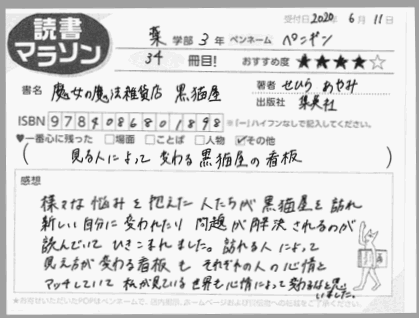 受付日 2020年 6月 11日
読書マラソン
薬 学部 3年 ペンネーム ペンギン
34 冊目! おすすめ度 ★★★★☆
書名 魔女の魔法雑貨店 黒猫屋
著者 せひら あやみ
出版社 集英社
ISBN 9784086801898 ※「-」ハイフンなしで記入してください。
♥一番心に残った □場面 □ことば □人物 ☑その他
(見る人によって 変わる 黒猫屋の看板)
感想
様々な悩みを抱えた人たちが黒猫屋を訪れ
新しい自分に変われたり 問題が解決されるのが
読んでいて ひきこまれました。訪れる人によって
見え方が変わる看板も それぞれの人の心情と
マッチしていて 私が見ている世界も心情によって変わるなと思いました。
★お寄せいただいたPOPはペンネームで、店内掲示、ホームページおよび